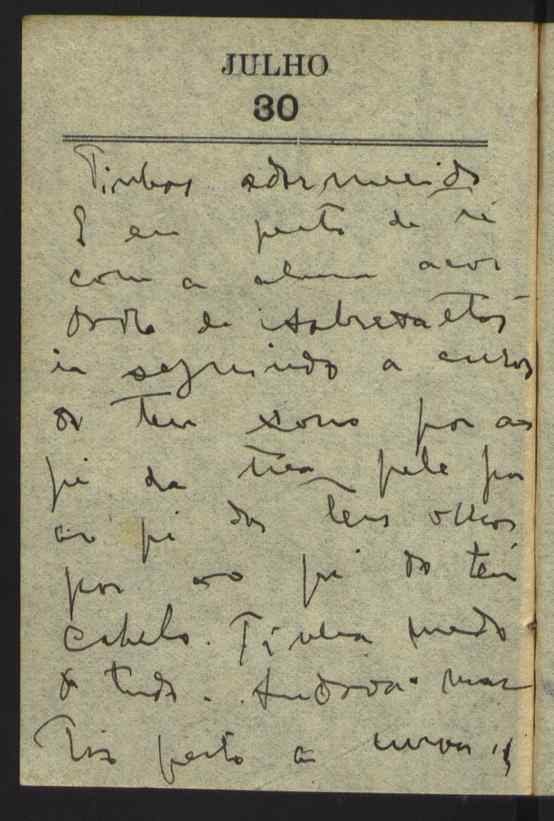 JULHO
30
Tinhas adormecido
E eu perto de ti
com a alma acor
dada de sobresaltos
ia seguindo a curso
do teu sono por ao
pé da tua pele por
ao pé dos teus olhos
por ao pé do teu
cabelo. Tinha medo
de tudo. Andava
perto a